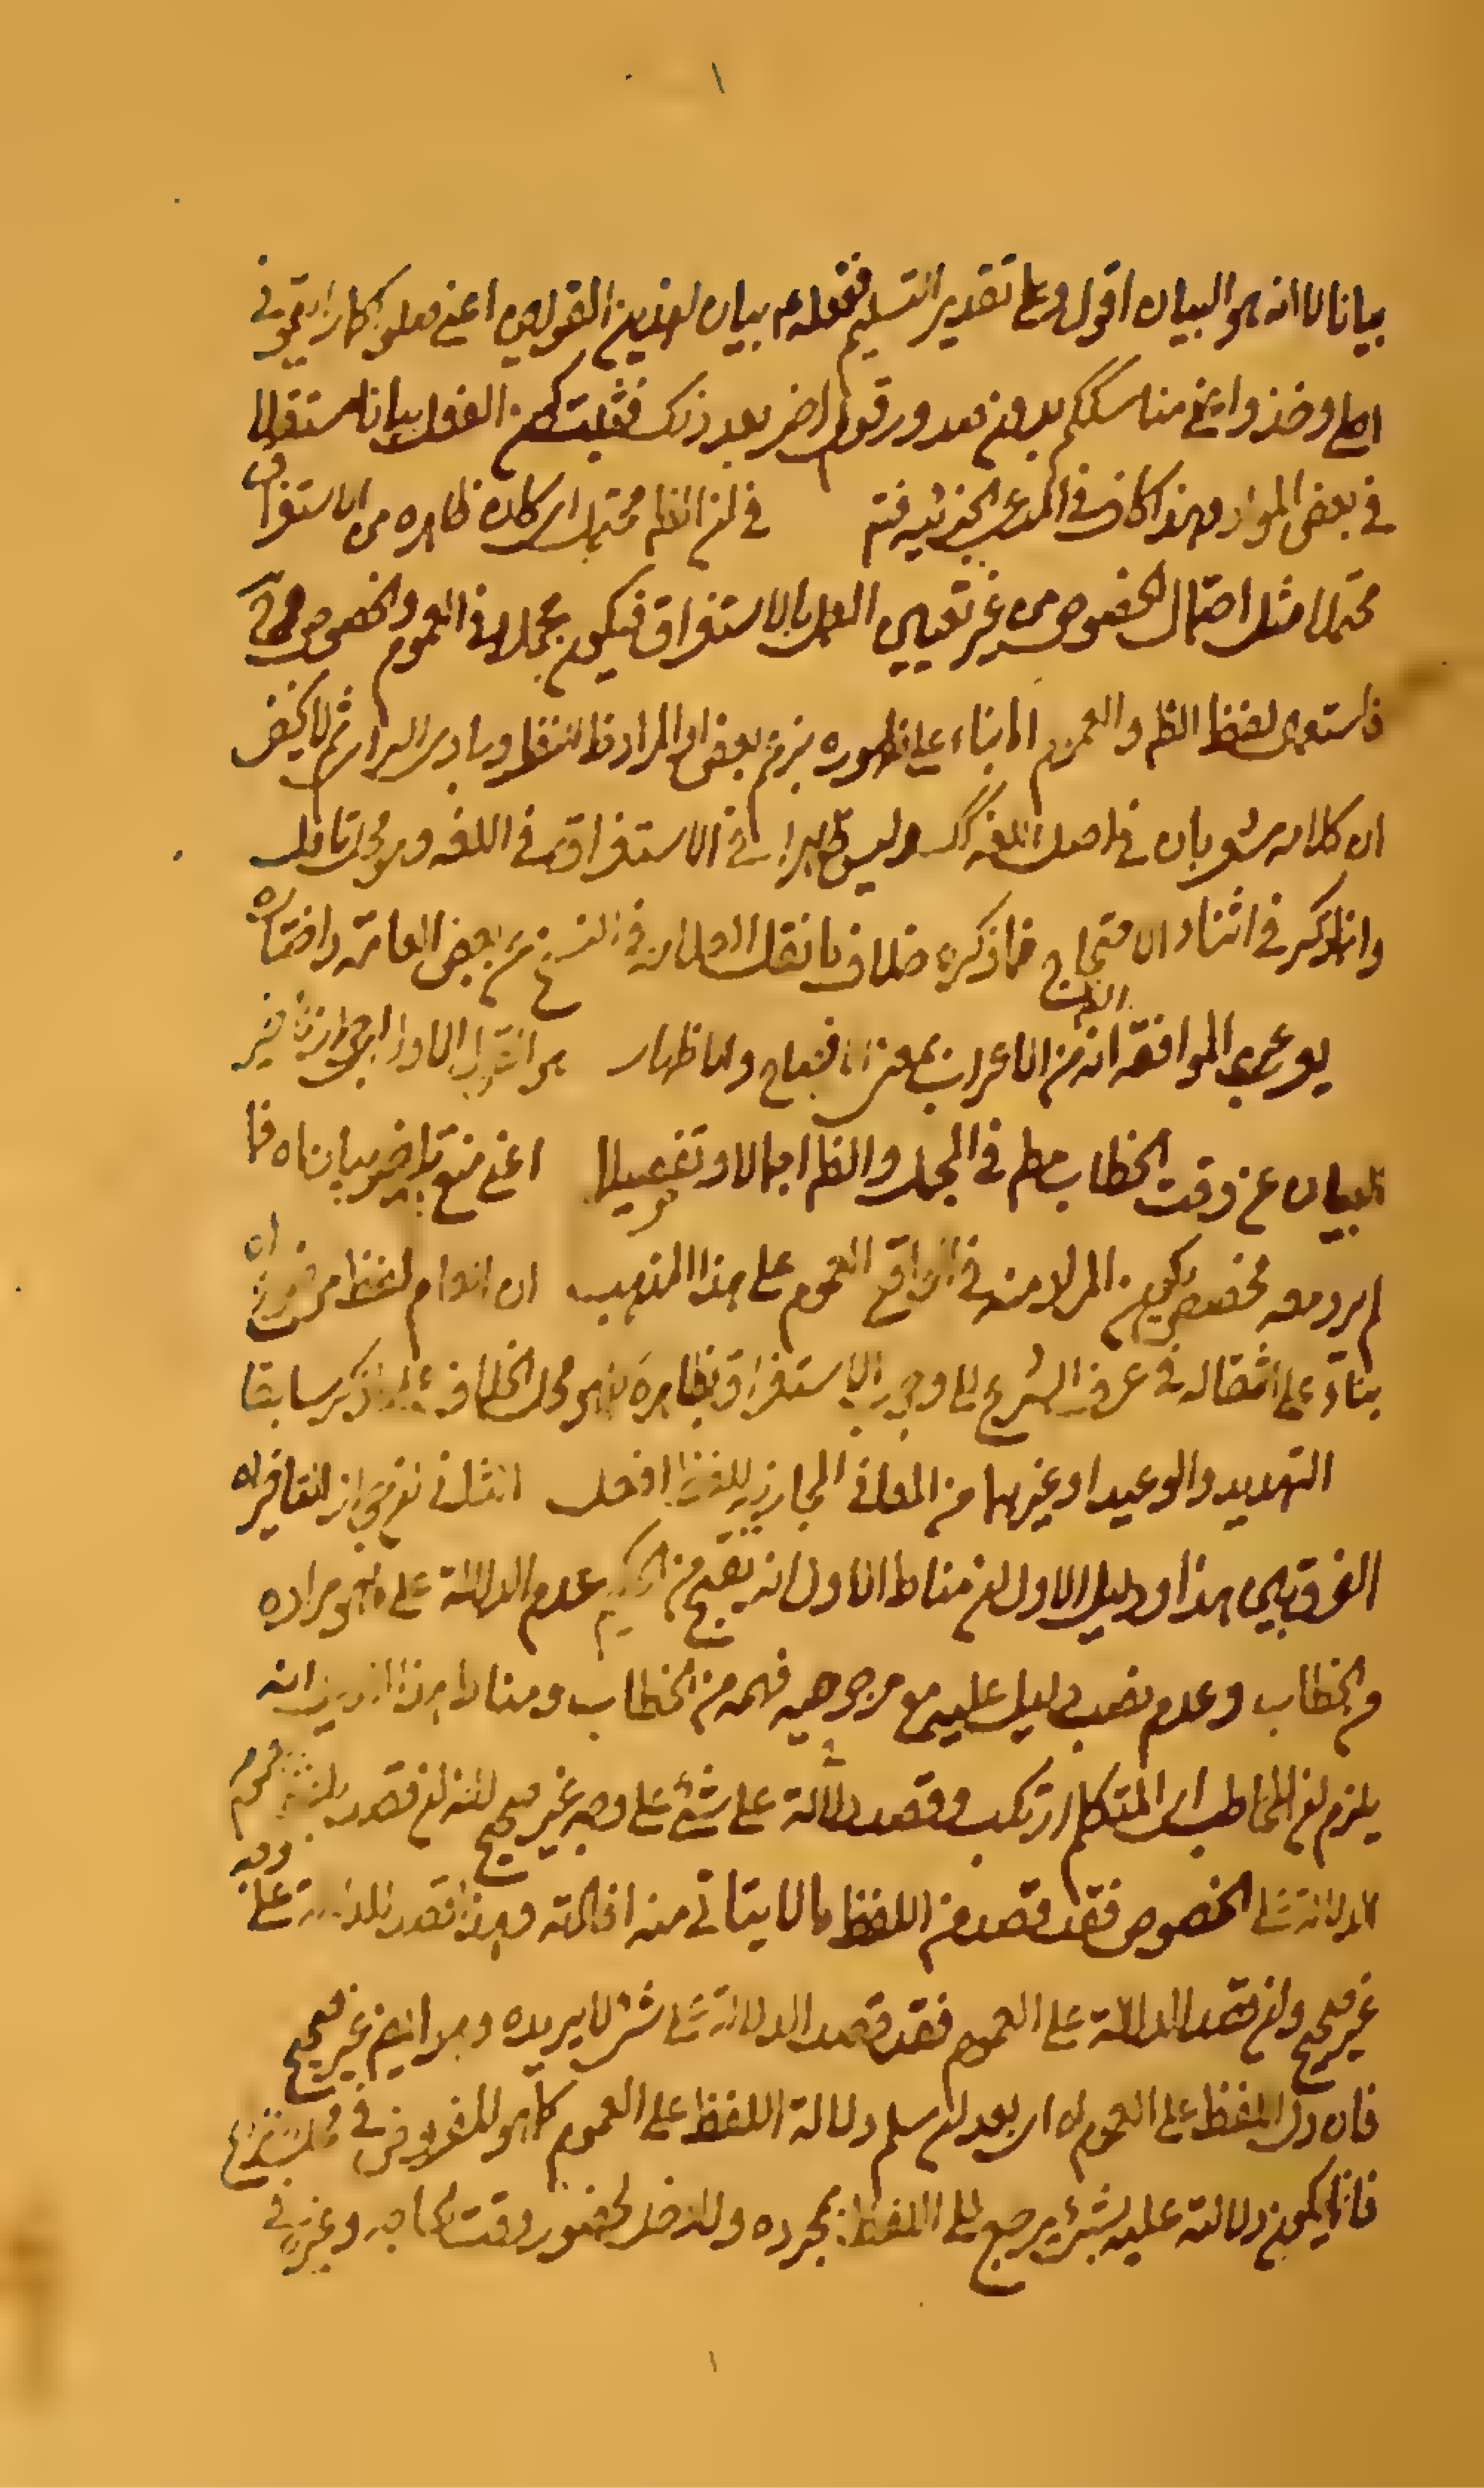 بيانا لا انه هو البيان اقول وعلى تقدير التسليم ففعله ع بيان لهذين القولين اعني صلوا كما رايتموني
اصلي وخذوا عني مناسككم بدون صدور قول اخر بعد ذلك فثبت كون الفعل بيانا مستقلا
في بعض المواد وهذا كاف في المدعى الجزئيه فتم في ان الظم محتمل اي كان ظاهره من الاستغراق
محتملا مثل احتمال الخصوص من غير تعيين العمل بالاستغراق فيكون مجملا في العموم والخصوص
فاستعمل لفظ الظم والعموم انما بناء على ظهوره بزعم بعض او المراد ظا لفظا وبادى الراى ثم لا يخفى
ان كلامه مشعر بان في اصل اللغة كك وليس ظاهرا في الاستغراق في اللغة وهو محل تامل
وانما ذكر في اثناء الاحتجاج فما ذكره خلاف ما نقل العلامه في النسخ عن بعض العامة واختاره
يو عرى الموافقه انه من الاعراب بمعنى الافصاح والاظهار
البيان عن وقت الخطاب مطم في المجمل والظم اجمالا وتفصيلا اعني منع تاخير بيانه فما
لم يرد معه مخصص يكون المراد منه في الواقع العموم على هذا المذهب ان العام لفظ موضوع
بناء على انتقاله في عرف الشرع الى وجوب الاستغراق بظاهره فهو محل الخلاف على ما ذكر سابقا
التهديد والوعيد او غيرهما من المعاني المجازيه للفظ افعل
الفرق بين هذا ودليل الاول ان مناط الاول انه يقبح من الحكيم عدم الدلالة على ما هو مراده
من الخطاب وعدم نصب دليل عليه مع مرجوحيه فهمه من الخطاب ومناط هذا الدليل انه
يلزم ان المخاطب اي المتكلم ارتكب وقصد دلالة على شئ على وجه غير صحيح لانه ان قصد
الدلالة على الخصوص فقد قصد من اللفظ ما لا يتاتى منه افهامه وهذا قصد للدلالة على وجه
غير صحيح وان قصد الدلالة على العموم فقد قصد الدلالة على شئ لا يريده وهو ايضا غير صحيح
فان دل اللفظ على العموم اه اي بعد ان سلم دلالة اللفظ على العموم كما هو المفروض في محل النزاع
فانما يكون دلالته عليه لشئ يرجع الى اللفظ بمجرده ولا دخل لحضور وقت الحاجه وغيره في